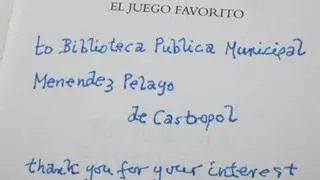 EL JUEGO FAVORITO
to Biblioteca Publica Municipal
Menendez Pelayo
de Castropol
thank you for your interest